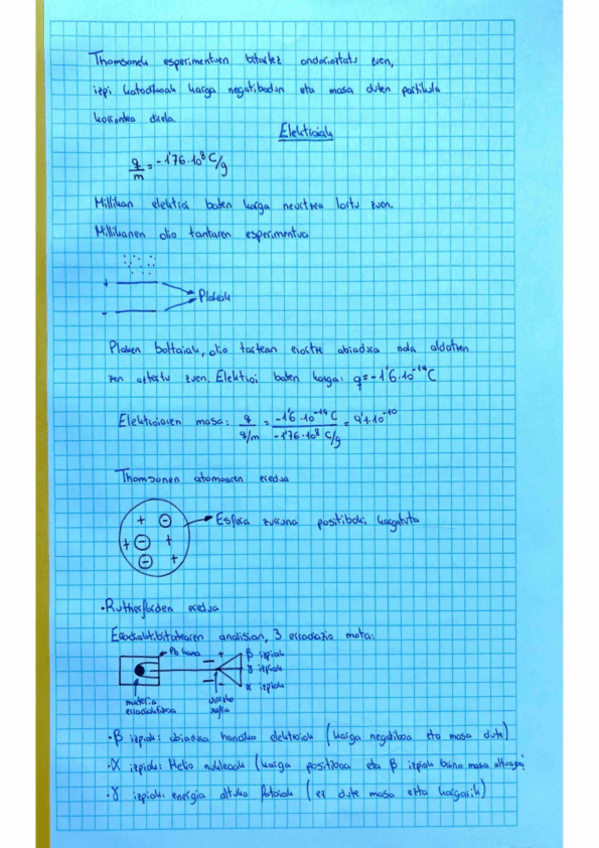 Thomsonek esperimentuen bitartez ondorioztatu zuen,
izpi katodikoak karga negatibodun eta masa duten partikula
korrontea direla.
Elektroiak
q/m = -1'76·10⁸ C/g
Millikan elektroi baten karga neurtzea lortu zuen.
Millikanen olio tantaren esperimentua
+
Plakak
-
Plaken boltaiak, olio tantean erortze abiadura nola aldatzen
zen aztertu zuen. Elektroi baten karga: q=-1'6·10⁻¹⁹C
Elektroiaren masa: q / q/m = -1'6·10⁻¹⁹ C / -1'76·10⁸ C/g = 9'1·10⁻¹⁰
Thomsonen atomoaren eredua
+ -
Esfera zurruna positiboki kargatuta
+ - +
- +
·Rutherforden eredua
Erradiaktibitatearen analisian, 3 erradiazio mota:
Pb kaxa + β izpiak
γ izpiak
- α izpiak
materia
erradiaktiboa
·β izpiak: abiadura handiko elektroiak (karga negatiboa eta masa dute)
·α izpiak: Helio nukleoak (karga positiboa eta β izpiak baino masa altuagoa)
·γ izpiak: energia altuko fotoiak (ez dute masa ezta kargarik)